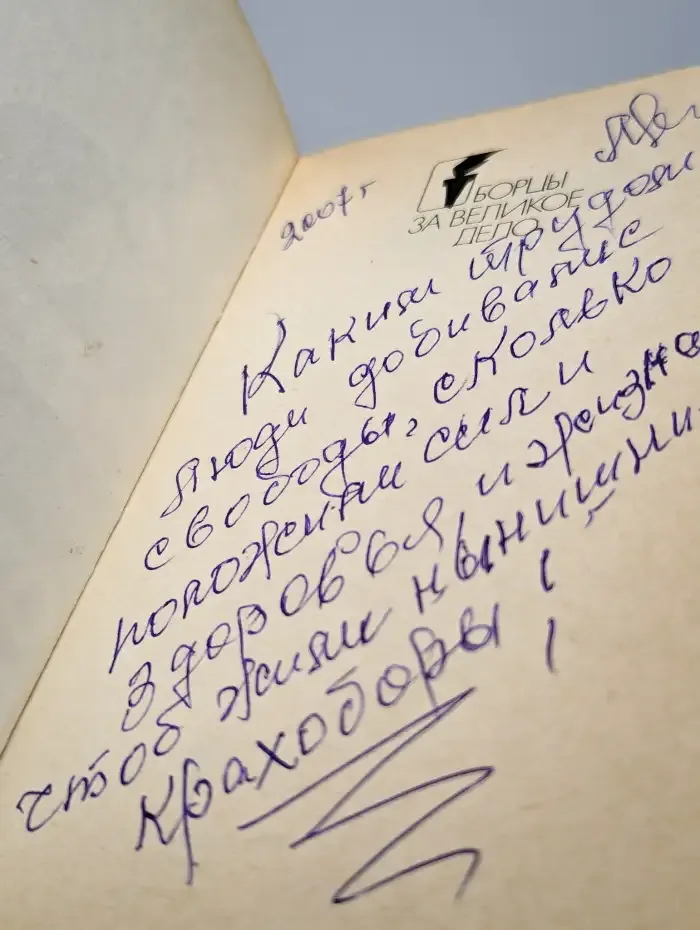 2007 г
БОРЦЫ
ЗА ВЕЛИКОЕ
ДЕЛО
Каким трудом
люди добивались
свободы, сколько
положили сил и
здоровья, и жизн
чтоб жили нынишни
крахоборы!